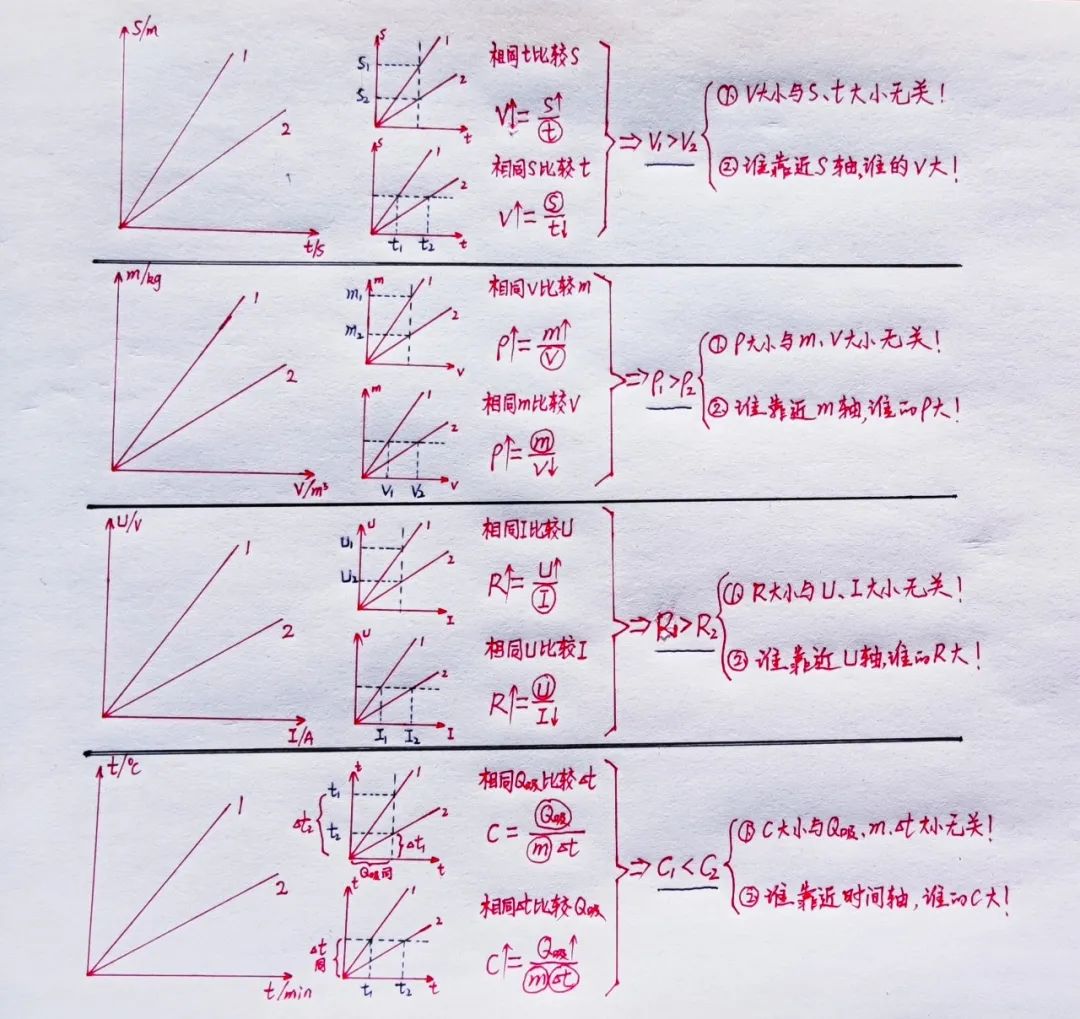 S/m
1
2
t/s
S
S₁
S₂
1
2
t
S
1
2
t₁ t₂ t
相同t比较S
V↑=S↑/t
相同S比较t
V↑=S/t↓
⇒V₁>V₂
①V大小与S、t大小无关！
②谁靠近S轴,谁的V大！
m/kg
1
2
V/m³
m
m₁
m₂
1
2
V
m
1
2
V₁ V₂ V
相同V比较m
ρ↑=m↑/V
相同m比较V
ρ↑=m/V↓
⇒ρ₁>ρ₂
①ρ大小与m、V大小无关！
②谁靠近m轴,谁的ρ大！
U/V
1
2
I/A
U
U₁
U₂
1
2
I
U
1
2
I₁ I₂ I
相同I比较U
R↑=U↑/I
相同U比较I
R↑=U/I↓
⇒R₁>R₂
①R大小与U、I大小无关！
②谁靠近U轴,谁的R大！
t/℃
1
2
t/min
t
t₁
t₂
Δt₂
Δt₁
1
2
Q吸同
t
t
1
2
Δt同
t₁ t₂ t
相同Q吸比较Δt
C=Q吸/mΔt
相同Δt比较Q吸
C↑=Q吸↑/mΔt
⇒C₁<C₂
①C大小与Q吸、m、Δt大小无关！
②谁靠近时间轴,谁的C大！